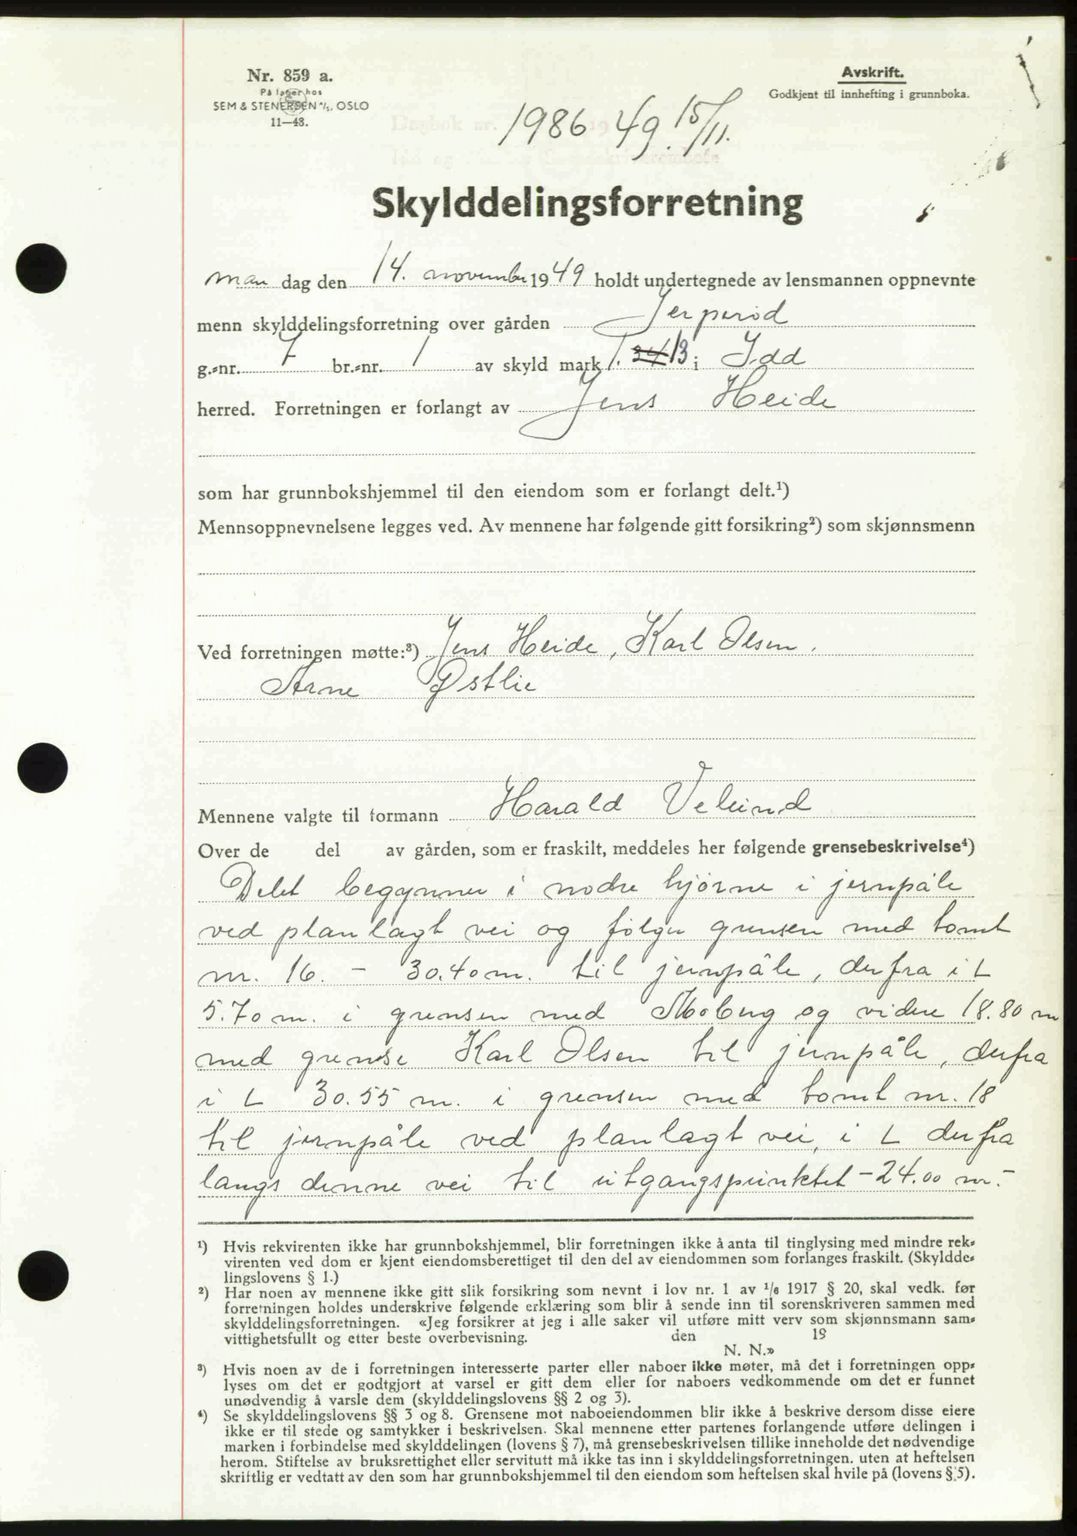 Nr. 859 a.
På lager hos
SEM & STENERSEN A/S, OSLO
11—48.
Avskrift.
Godkjent til innhefting i grunnboka.
1986 49. 15/11.
Skylddelingsforretning
man dag den 14. november 1949 holdt undertegnede av lensmannen oppnevnte
menn skylddelingsforretning over gården Jerperød
g.-nr. 7 br.-nr. 1 av skyld mark 1.13 i Idd
herred. Forretningen er forlangt av Jens Heide
som har grunnbokshjemmel til den eiendom som er forlangt delt.¹)
Mennsoppnevnelsene legges ved. Av mennene har følgende gitt forsikring²) som skjønnsmenn
Ved forretningen møtte:³) Jens Heide, Karl Olsen.
Arne Østlie
Mennene valgte til formann Harald Veleind
Over de del av gården, som er fraskilt, meddeles her følgende grensebeskrivelse⁴)
Delet begynner i nodre hjørne i jernpåle
ved planlagt vei og følger grensen med tomt
nr. 16. - 30.40 m. til jernpåle, derfra i L
5.70 m. i grensen med Moberg og videre 18.80 m
med grense Karl Olsen til jernpåle, derfra
i L 30.55 m. i grensen med tomt nr. 18
til jernpåle ved planlagt vei, i L derfra
langs denne vei til utgangspunktet - 24.00 m.-
¹) Hvis rekvirenten ikke har grunnbokshjemmel, blir forretningen ikke å anta til tinglysing med mindre rek-
virenten ved dom er kjent eiendomsberettiget til den del av eiendommen som forlanges fraskilt. (Skyldde-
lingslovens § 1.)
²) Har noen av mennene ikke gitt slik forsikring som nevnt i lov nr. 1 av 1/6 1917 § 20, skal vedk. før
forretningen holdes underskrive følgende erklæring som blir å sende inn til sorenskriveren sammen med
skylddelingsforretningen. «Jeg forsikrer at jeg i alle saker vil utføre mitt verv som skjønnsmann sam-
vittighetsfullt og etter beste overbevisning. den 19
N. N.»
³) Hvis noen av de i forretningen interesserte parter eller naboer ikke møter, må det i forretningen opp-
lyses om det er godtgjort at varsel er gitt dem eller for naboers vedkommende om det er funnet
unødvendig å varsle dem (skylddelingslovens §§ 2 og 3).
⁴) Se skylddelingslovens §§ 3 og 8. Grensene mot naboeiendommen blir ikke å beskrive dersom disse eiere
ikke er til stede og samtykker i beskrivelsen. Skal mennene etter partenes forlangende utføre delingen i
marken i forbindelse med skylddelingen (lovens § 7), må grensebeskrivelsen tillike inneholde det nødvendige
herom. Stiftelse av bruksrettighet eller servitutt må ikke tas inn i skylddelingsforretningen, uten at heftelsen
skriftlig er vedtatt av den som har grunnbokshjemmel til den eiendom som heftelsen skal hvile på (lovens § 5).